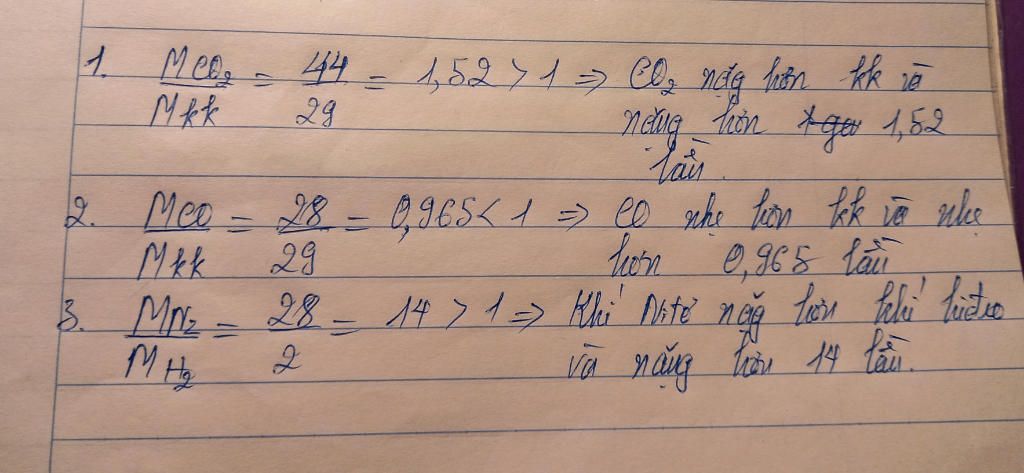 1. MCO₂/Mkk = 44/29 = 1,52 > 1 => CO₂ nặg hơn kk và
nặng hơn 1,52
lần.
2. MCO/Mkk = 28/29 = 0,965 < 1 => CO nhẹ hơn kk và nhẹ
hơn 0,965 lần
3. MN₂/MH₂ = 28/2 = 14 > 1 => Khí Nitơ nặg hơn khí hiđro
và nặng hơn 14 lần.